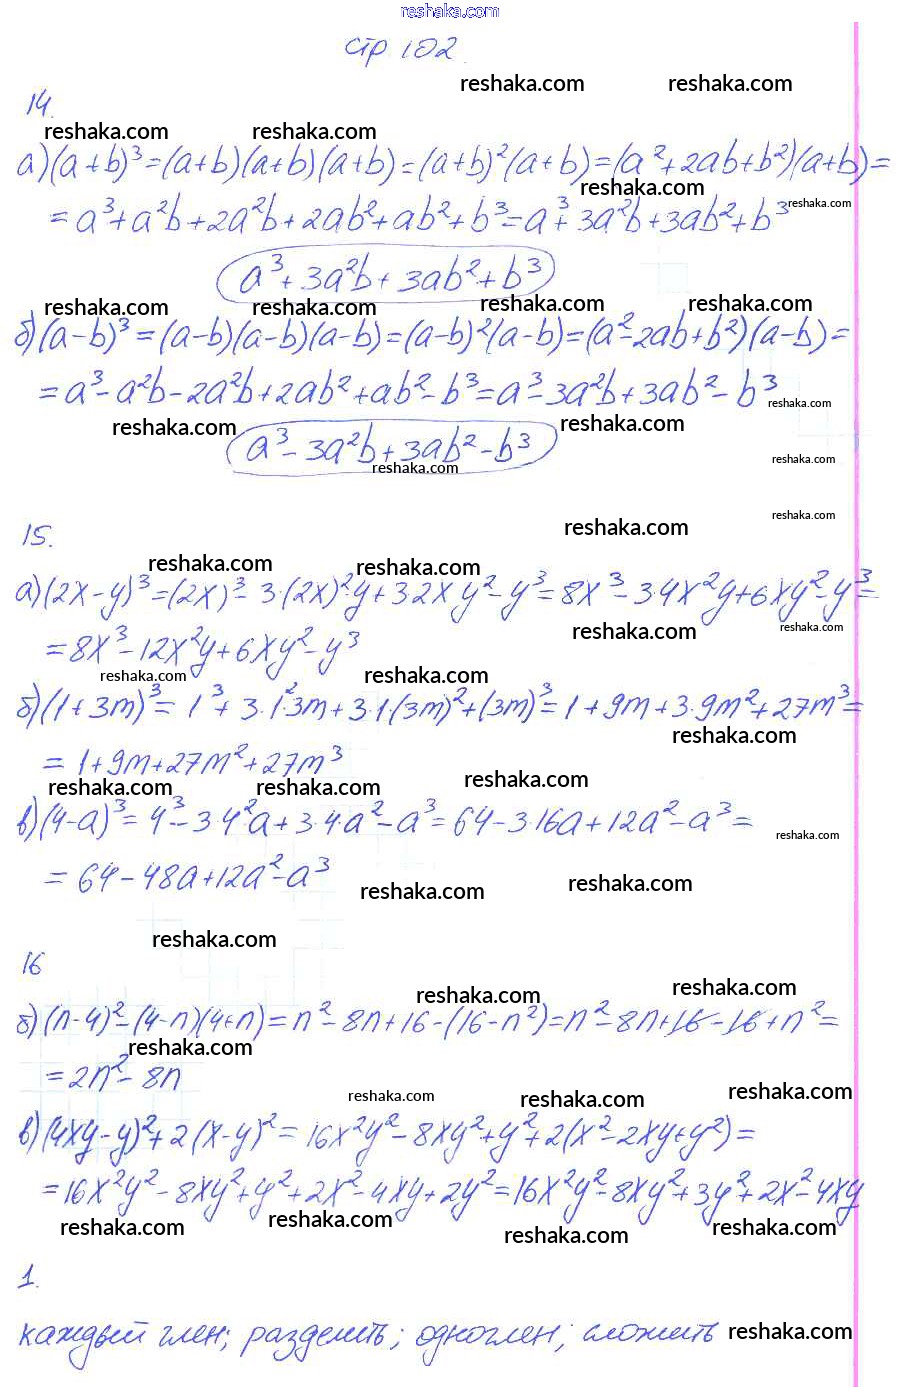 reshaka.com
стр 102.
reshaka.com reshaka.com
14.
reshaka.com reshaka.com
а) (a+b)³=(a+b)(a+b)(a+b)=(a+b)²(a+b)=(a²+2ab+b²)(a+b)=
reshaka.com reshaka.com
=a³+a²b+2a²b+2ab²+ab²+b³=a³+3a²b+3ab²+b³
a³+3a²b+3ab²+b³
reshaka.com reshaka.com reshaka.com reshaka.com
б) (a-b)³=(a-b)(a-b)(a-b)=(a-b)²(a-b)=(a²-2ab+b²)(a-b)=
=a³-a²b-2a²b+2ab²+ab²-b³=a³-3a²b+3ab²-b³
reshaka.com
reshaka.com reshaka.com
a³-3a²b+3ab²-b³
reshaka.com reshaka.com
reshaka.com
15.
reshaka.com
reshaka.com reshaka.com
а) (2x-y)³=(2x)³-3·(2x)²·y+3·2xy²-y³=8x³-3·4x²y+6xy²-y³=
reshaka.com reshaka.com
=8x³-12x²y+6xy²-y³
reshaka.com reshaka.com
б) (1+3m)³=1³+3·1²·3m+3·1·(3m)²+(3m)³=1+9m+3·9m²+27m³=
reshaka.com
=1+9m+27m²+27m³
reshaka.com reshaka.com reshaka.com
в) (4-a)³=4³-3·4²a+3·4·a²-a³=64-3·16a+12a²-a³=
reshaka.com
=64-48a+12a²-a³
reshaka.com reshaka.com
reshaka.com
16
reshaka.com reshaka.com
б) (n-4)²-(4-n)(4+n)=n²-8n+16-(16-n²)=n²-8n+16-16+n²=
reshaka.com
=2n²-8n
reshaka.com reshaka.com reshaka.com
в) (4xy-y)²+2(x-y)²=16x²y²-8xy²+y²+2(x²-2xy+y²)=
=16x²y²-8xy²+y²+2x²-4xy+2y²=16x²y²-8xy²+3y²+2x²-4xy
reshaka.com reshaka.com reshaka.com reshaka.com
1.
каждый член; разделить; одночлен; сложить
reshaka.com